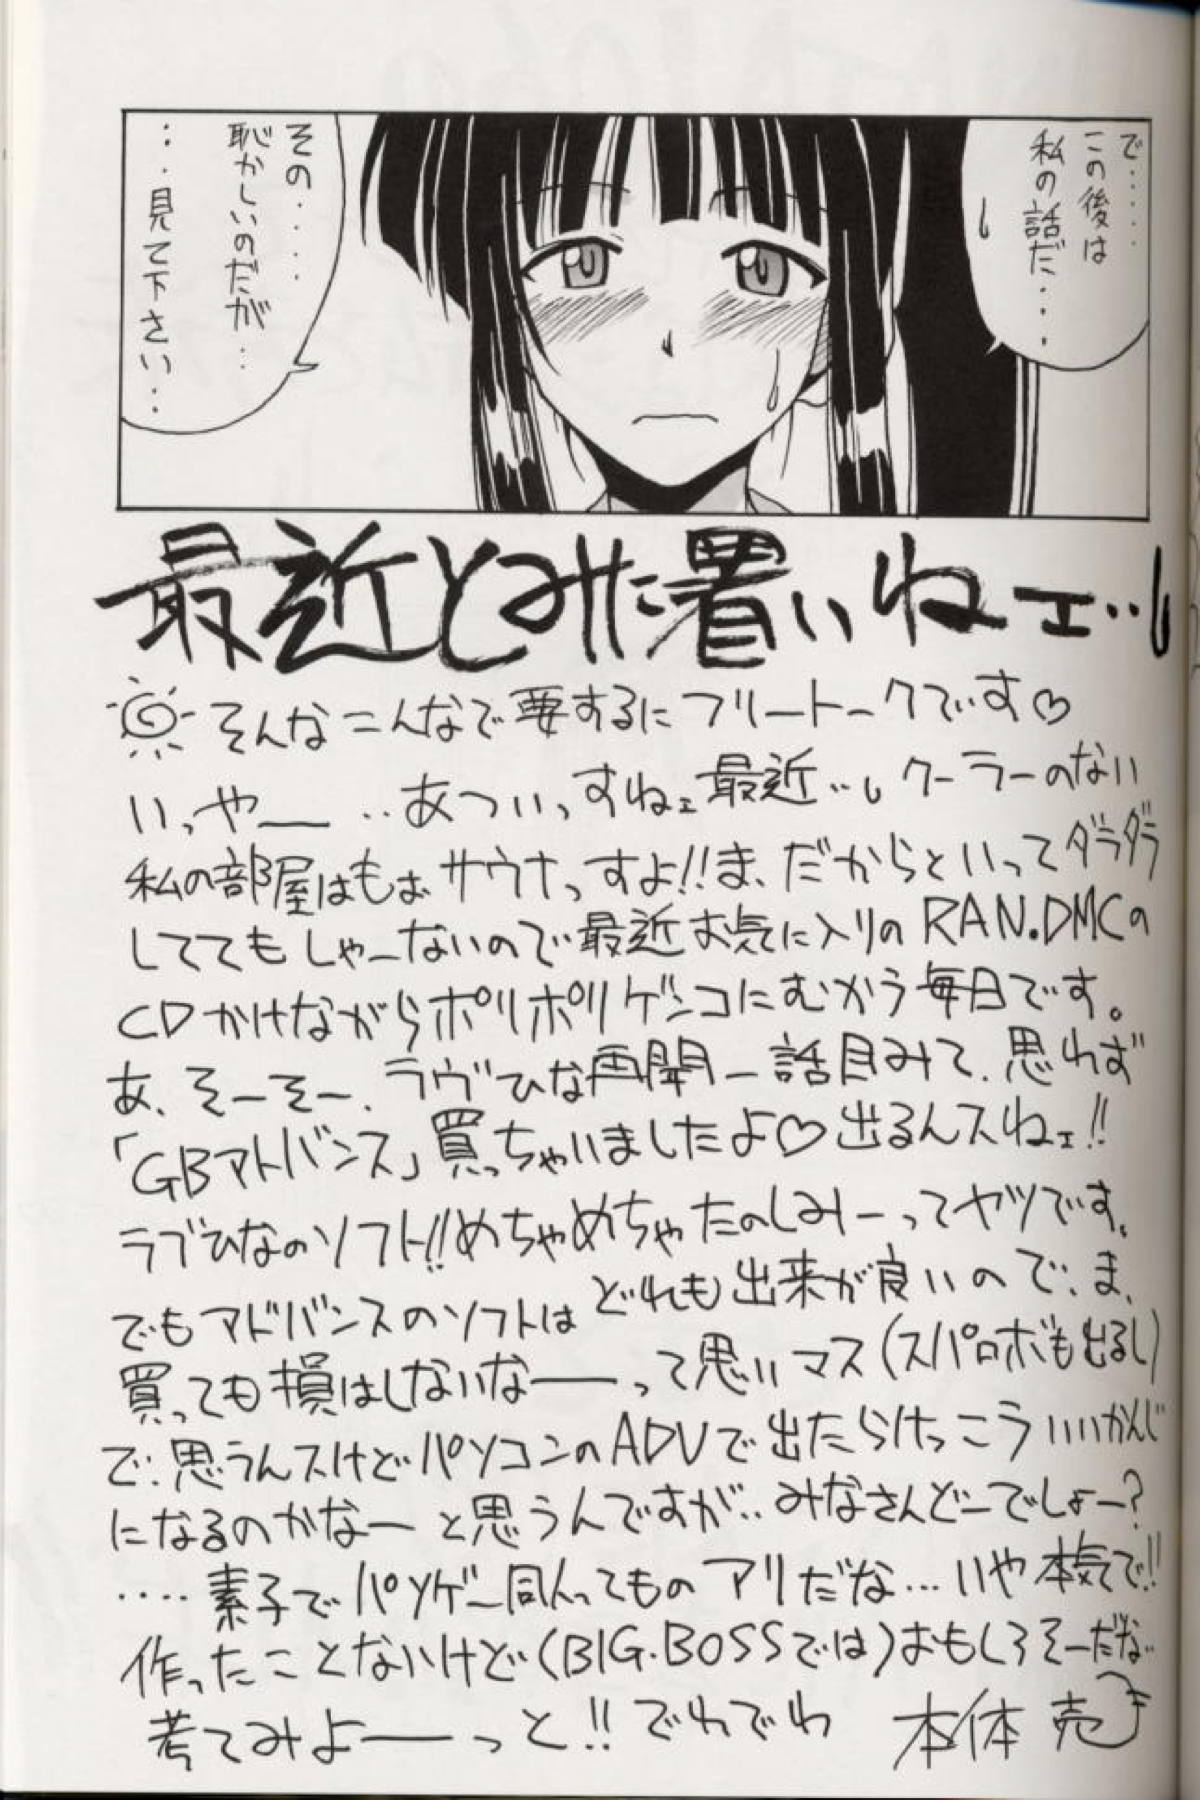 で‥‥
この後は
私の話だ・・・
その・・・・
恥かしいのだが‥
・・・見て下さい・・
最近とみに暑いねェ‥
そんなこんなで要するにフリートークです♡
いっやー‥あついっすねェ最近‥クーラーのない
私の部屋はもぉサウナっすよ!!ま、だからといってダラダラ
しててもしゃーないので最近お気に入りのRAN.DMCの
CDかけながらポリポリゲンコにむかう毎日です。
あ、そーそー、ラヴひな再開一話目みて、思わず
「GBアドバンス」買っちゃいましたよ♡出るんスねェ!!
ラブひなのソフト!!めちゃめちゃたのしみーってヤツです。
でもアドバンスのソフトはどれも出来が良いので、ま、
買っても損はしないなーって思いマス(スパロボも出るし)
で、思うんスけどパソコンのADVで出たらけっこういいかんじ
になるのかなーと思うんですが‥みなさんどーでしょー?
‥‥素子でパソゲー同人ってものアリだな…いや本気で!!
作ったことないけど(BIG.BOSSでは)おもしろそーだな
考てみよーっと!!でわでわ 本体 売